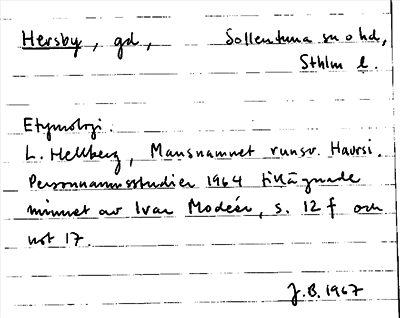 Hersby, gd, Sollentuna sn o hd,
Sthlm l.
Etymologi:
L. Hellberg, Mansnamnet runsv. Haursi.
Personnamnsstudier 1964 tillägnade
minnet av Ivar Modéer, s. 12 f och
not 17.
J.B. 1967